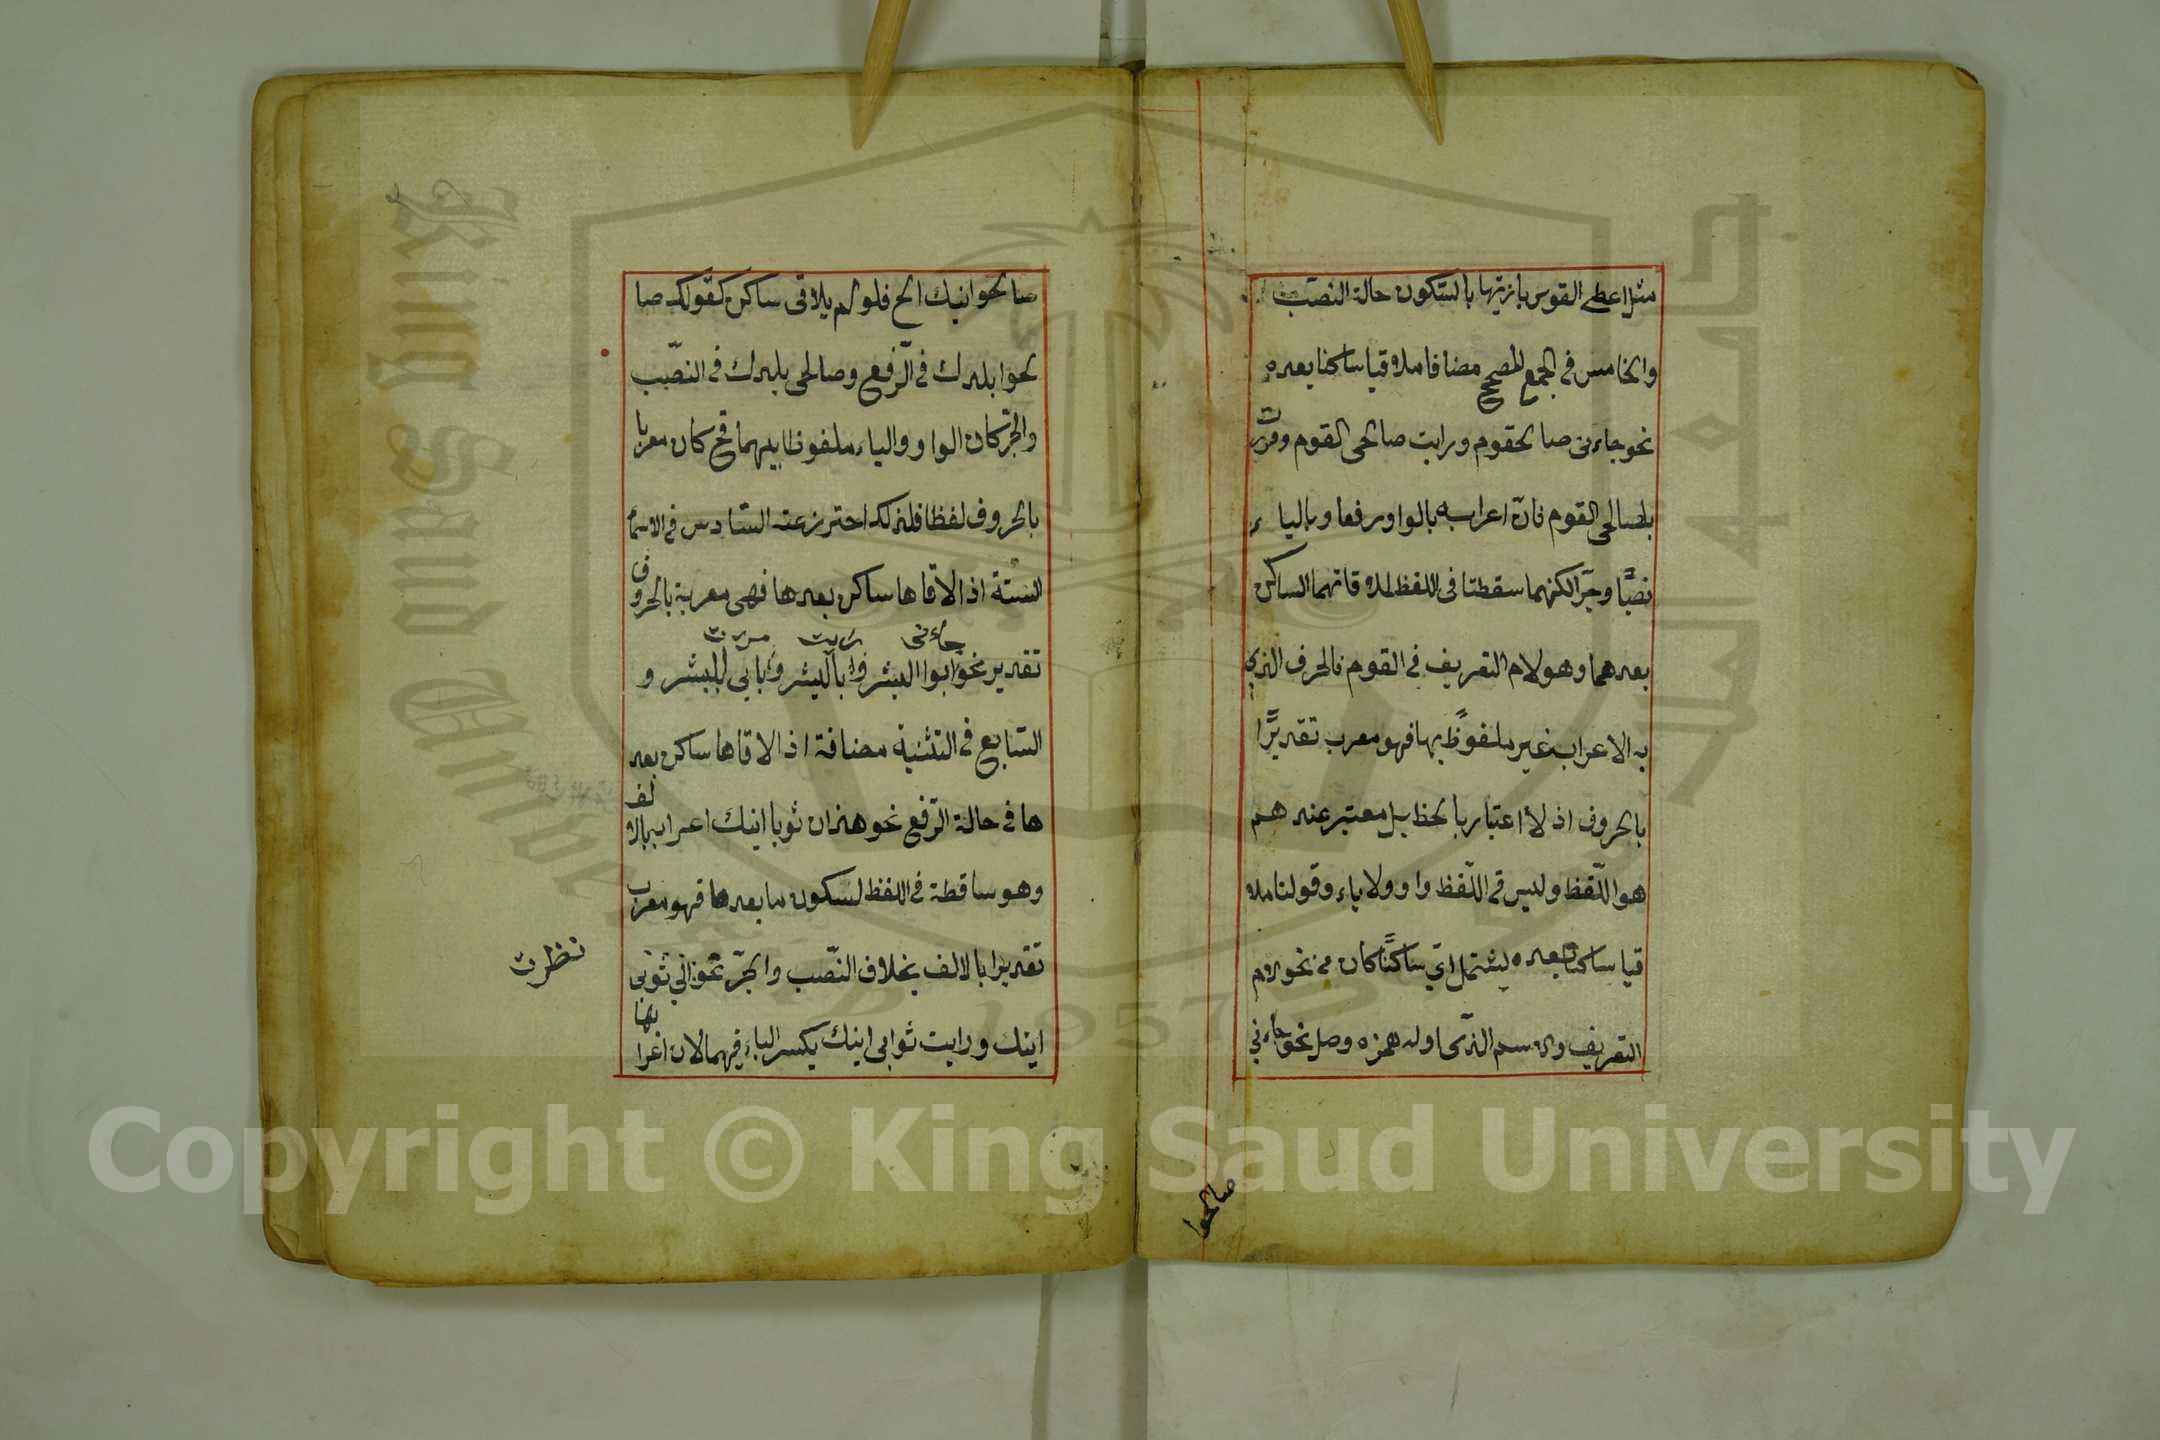 مثل اعط القوس باريها بالسكون حالة النصب
والخامس في الجمع المصحح مضافا ملاقيا ساكنا بعده
نحو جاءني صالحقوم ورايت صالحى القوم ومررت
بصالحى القوم فانّ اعرابه بالواو رفعا وبالياء
نصبًا وجرّا لكنهما سقطتا فى اللفظ لملاقاتهما الساكن
بعدهما وهو لام التعريف في القوم فالحرف الذي
به الاعراب غير ملفوظ بها فهو معرب تقديرًا
بالحروف اذ لا اعتبار بالخط بل معتبر عندهم
هو اللّفظ وليس في اللّفظ واو ولا ياء وقولنا ملا
قيا ساكنا بعده ليشتمل ايّ ساكنًا كان من نحو لام
التعريف والاسم الذّى اوله همزه وصل نحو جاءني
صالحوا
صالحوا ابنك الخ فلو لم يلاقى ساكن كقولك صا
لحوا بلدك في الرّفع وصالحى بلدك في النصّب
والجرّ كان الواو والياء ملفوظا بهما فح كان معربا
بالحروف لفظا فلذلك احترز عنه السّادس في الاسما
السّتة اذا لاقاها ساكن بعدها فهى معربة بالحروف
جاءنى رايت مررت
تقدير نحو ابوا البشر وابا البشر وبابي البشر و
السّابع في التثنية مضافة اذا لاقاها ساكن بعد
ها في حالة الرّفع نحو هذان ثوبا ابنك اعرابه بالالف
وهو ساقطة في اللفظ لسكون ما بعدها فهو معرب
تقديرًا بالالف بخلاف النّصب والجرّ نحو الي ثوبى
نظرت
ابنك ورايت ثوابى ابنك بكسر الباء فيهما لان اعرابها
Copyright © King Saud University
King Saud University
جامعة الملك سعود
1957